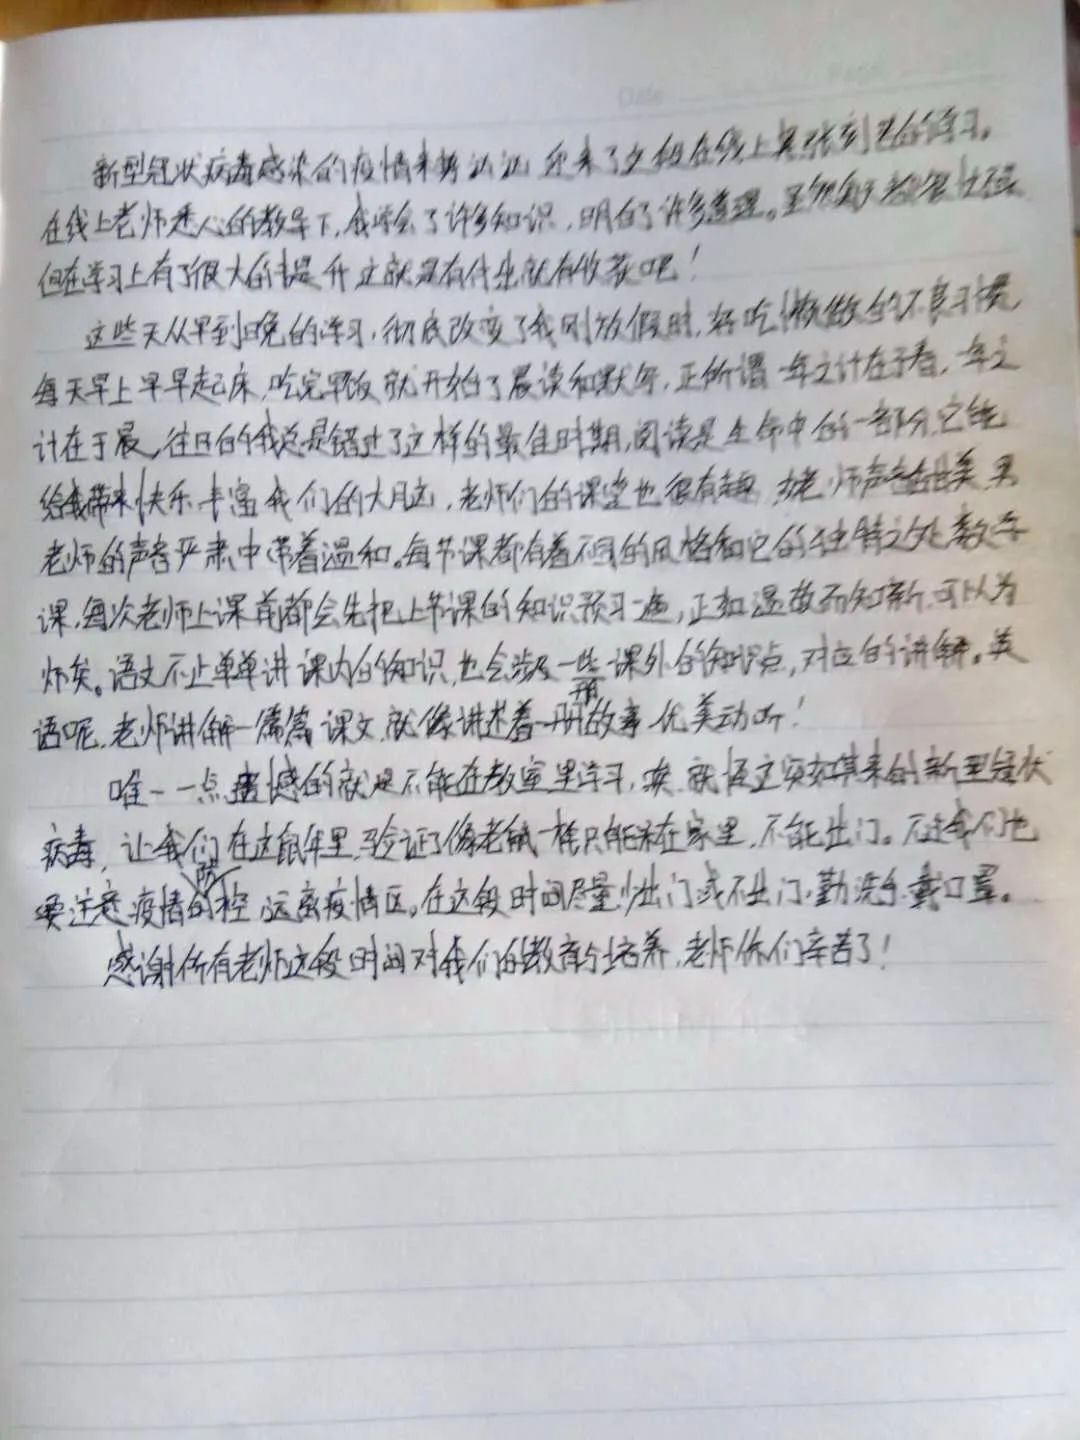 新型冠状病毒感染的疫情来势汹汹,迎来了在线上的学习。
在线上老师悉心的教导下,我学会了许多知识,明白了许多道理。虽然每天
但在学习上有了很大的提升这就是有付出就有收获吧!
这些天从早到晚的学习,彻底改变了我刚放假时,好吃懒做的不良习惯,
每天早上早早起床,吃完早饭就开始了晨读和默写,正所谓一年之计在于春,一年之
计在于晨,往日的我总是错过了这样的最佳时期,阅读是生命中的一部分,它能
给我带来快乐,丰富我们的大脑,老师们的课堂也很有趣,老师声音甜美,男
老师的声音严肃中带着温和。每节课都有着不同的风格和它的独特之处,数学
课,每次老师上课前都会先把上节课的知识预习一遍,正如温故而知新,可以为
师矣。语文不止单单讲课内的知识,也会涉及一些课外的知识点,对应的讲解。英
语呢,老师讲解一篇篇课文,就像讲述着一册册故事,优美动听!
唯一一点遗憾的就是不能在教室里学习,唉,就怪这突如其来的新型冠状
病毒,让我们在这鼠年里,验证了像老鼠一样只能呆在家里,不能出门。不过我们也
要注意疫情防控,远离疫情区。在这段时间尽量少出门或不出门,勤洗手,戴口罩。
感谢所有老师这段时间对我们的教育与培养,老师你们辛苦了!